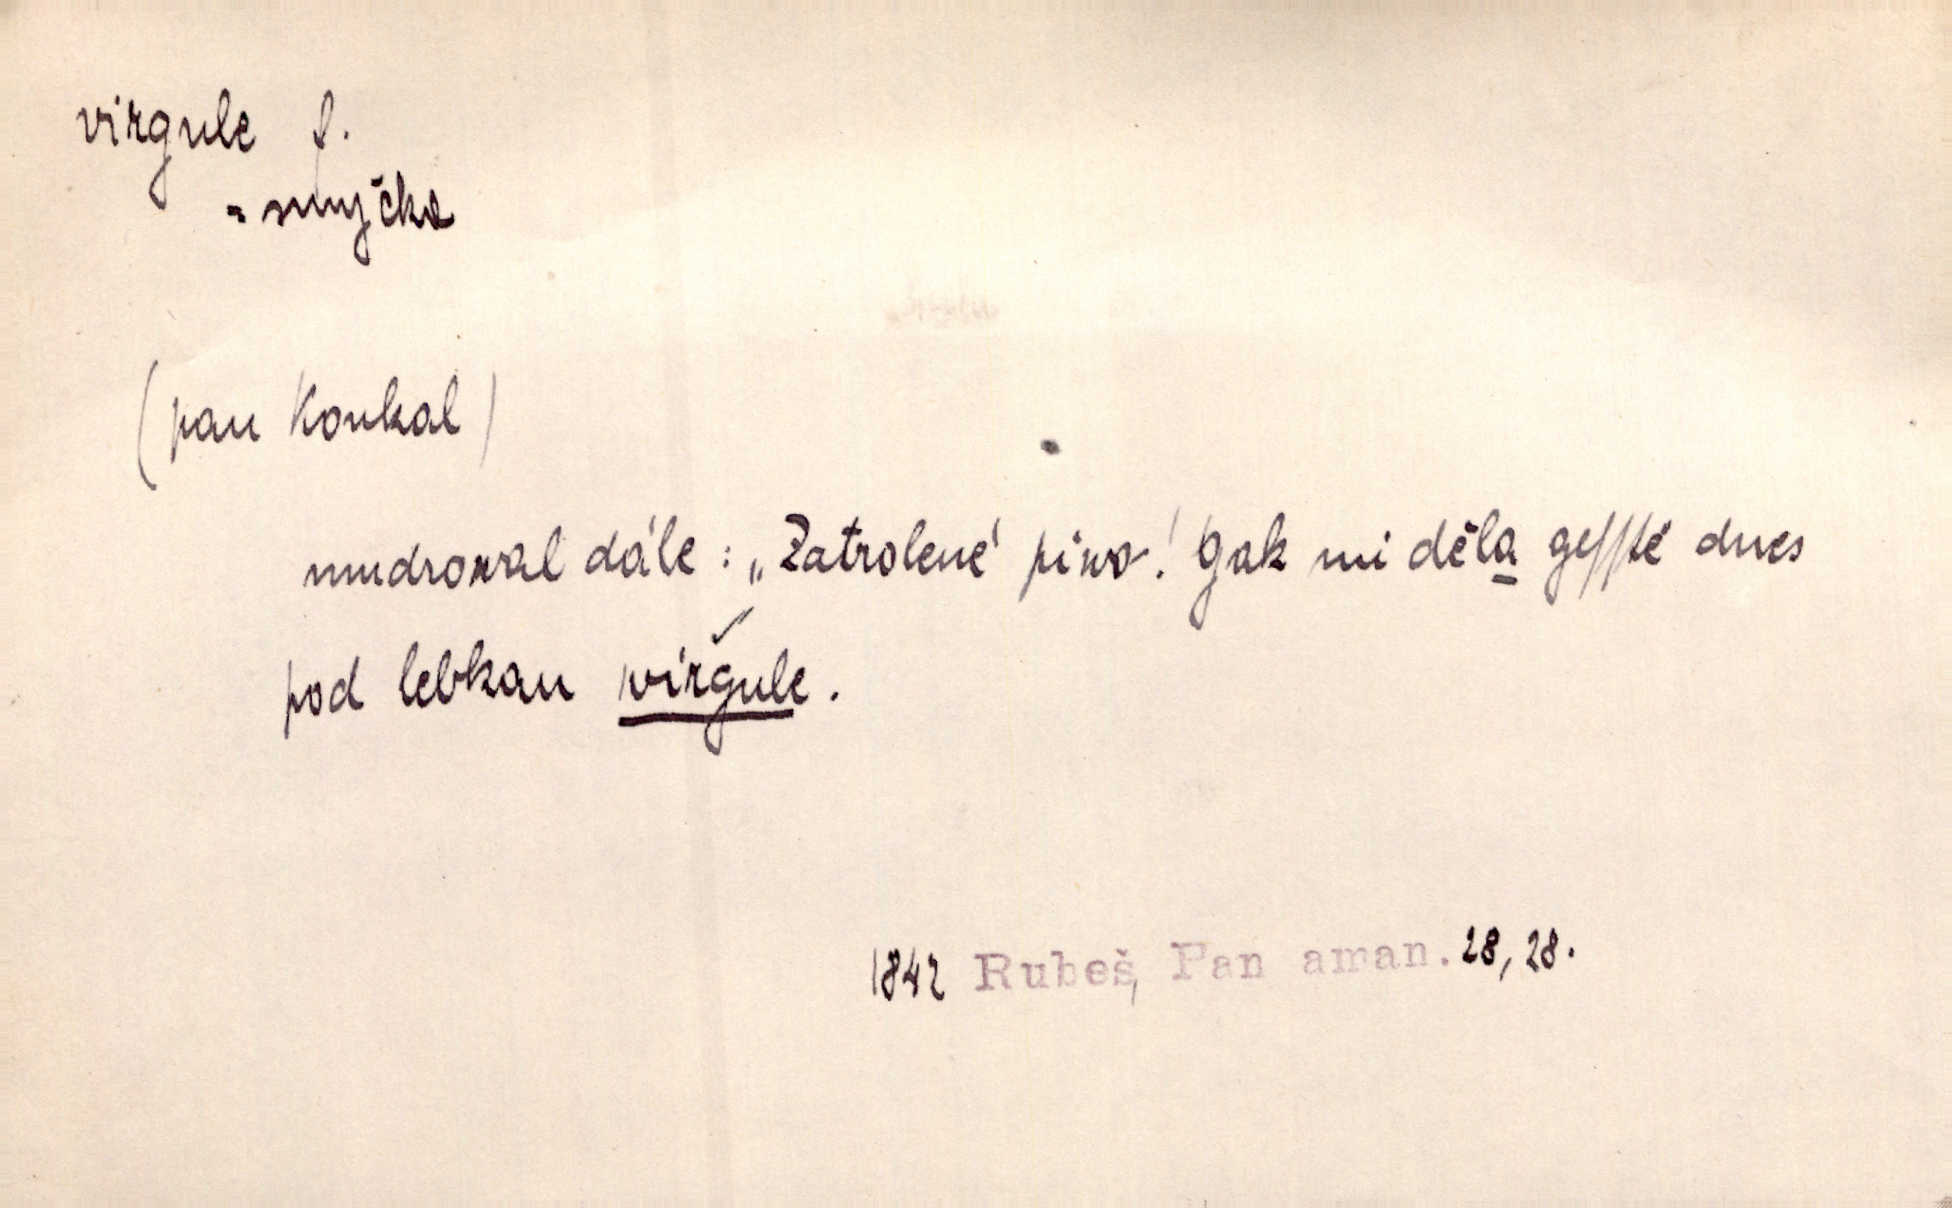 virgule f.
= smyčka
(pan Koukal)
mudrowal dále: „Zatrolené piwo! Gak mi děla gessstě dnes
pod lebkau wirgule.
1842 Rubeš, Pan aman. 28, 28.